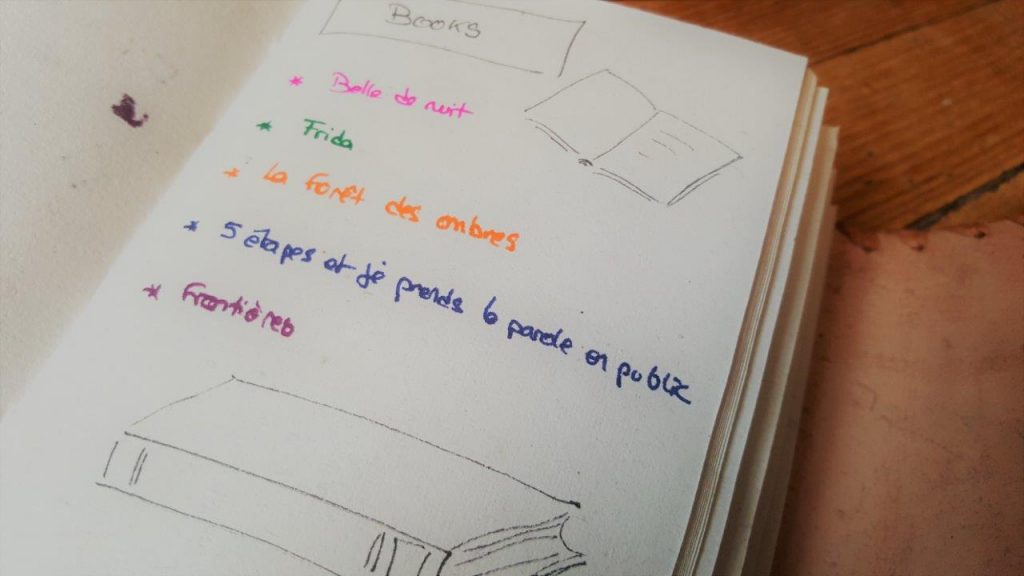 Books
* Belle de nuit
* Frida
* La forêt des ombres
* 5 étapes et je prends la parole en public
* Frontières